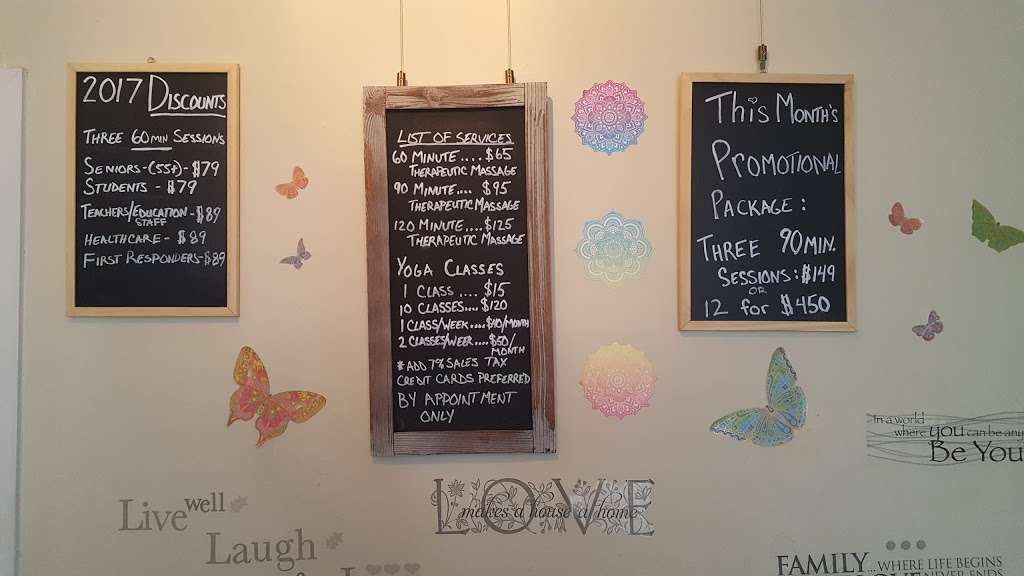 2017 DISCOUNTS
THREE 60MIN SESSIONS
SENIORS-(55+)-$79
STUDENTS - $79
TEACHERS/EDUCATION-$89
STAFF
HEALTHCARE- $89
FIRST RESPONDERS-$89
LIST OF SERVICES
60 MINUTE....$65
THERAPEUTIC MASSAGE
90 MINUTE.... $95
THERAPEUTIC MASSAGE
120 MINUTE....$125
THERAPEUTIC MASSAGE
YOGA CLASSES
1 CLASS .... $15
10 CLASSES....$120
1 CLASS/WEEK....$40/MONTH
2 CLASSES/WEEK....$50/
MONTH
* ADD 7% SALES TAX
CREDIT CARDS PREFERRED
BY APPOINTMENT
ONLY
THIS MONTH'S
PROMOTIONAL
PACKAGE:
THREE 90MIN.
SESSIONS:$149
OR
12 for $450
In a world
where you can be any
Be You
Live well
Laugh
LOVE
makes a house a home
FAMILY...WHERE LIFE BEGINS
NEVER ENDS